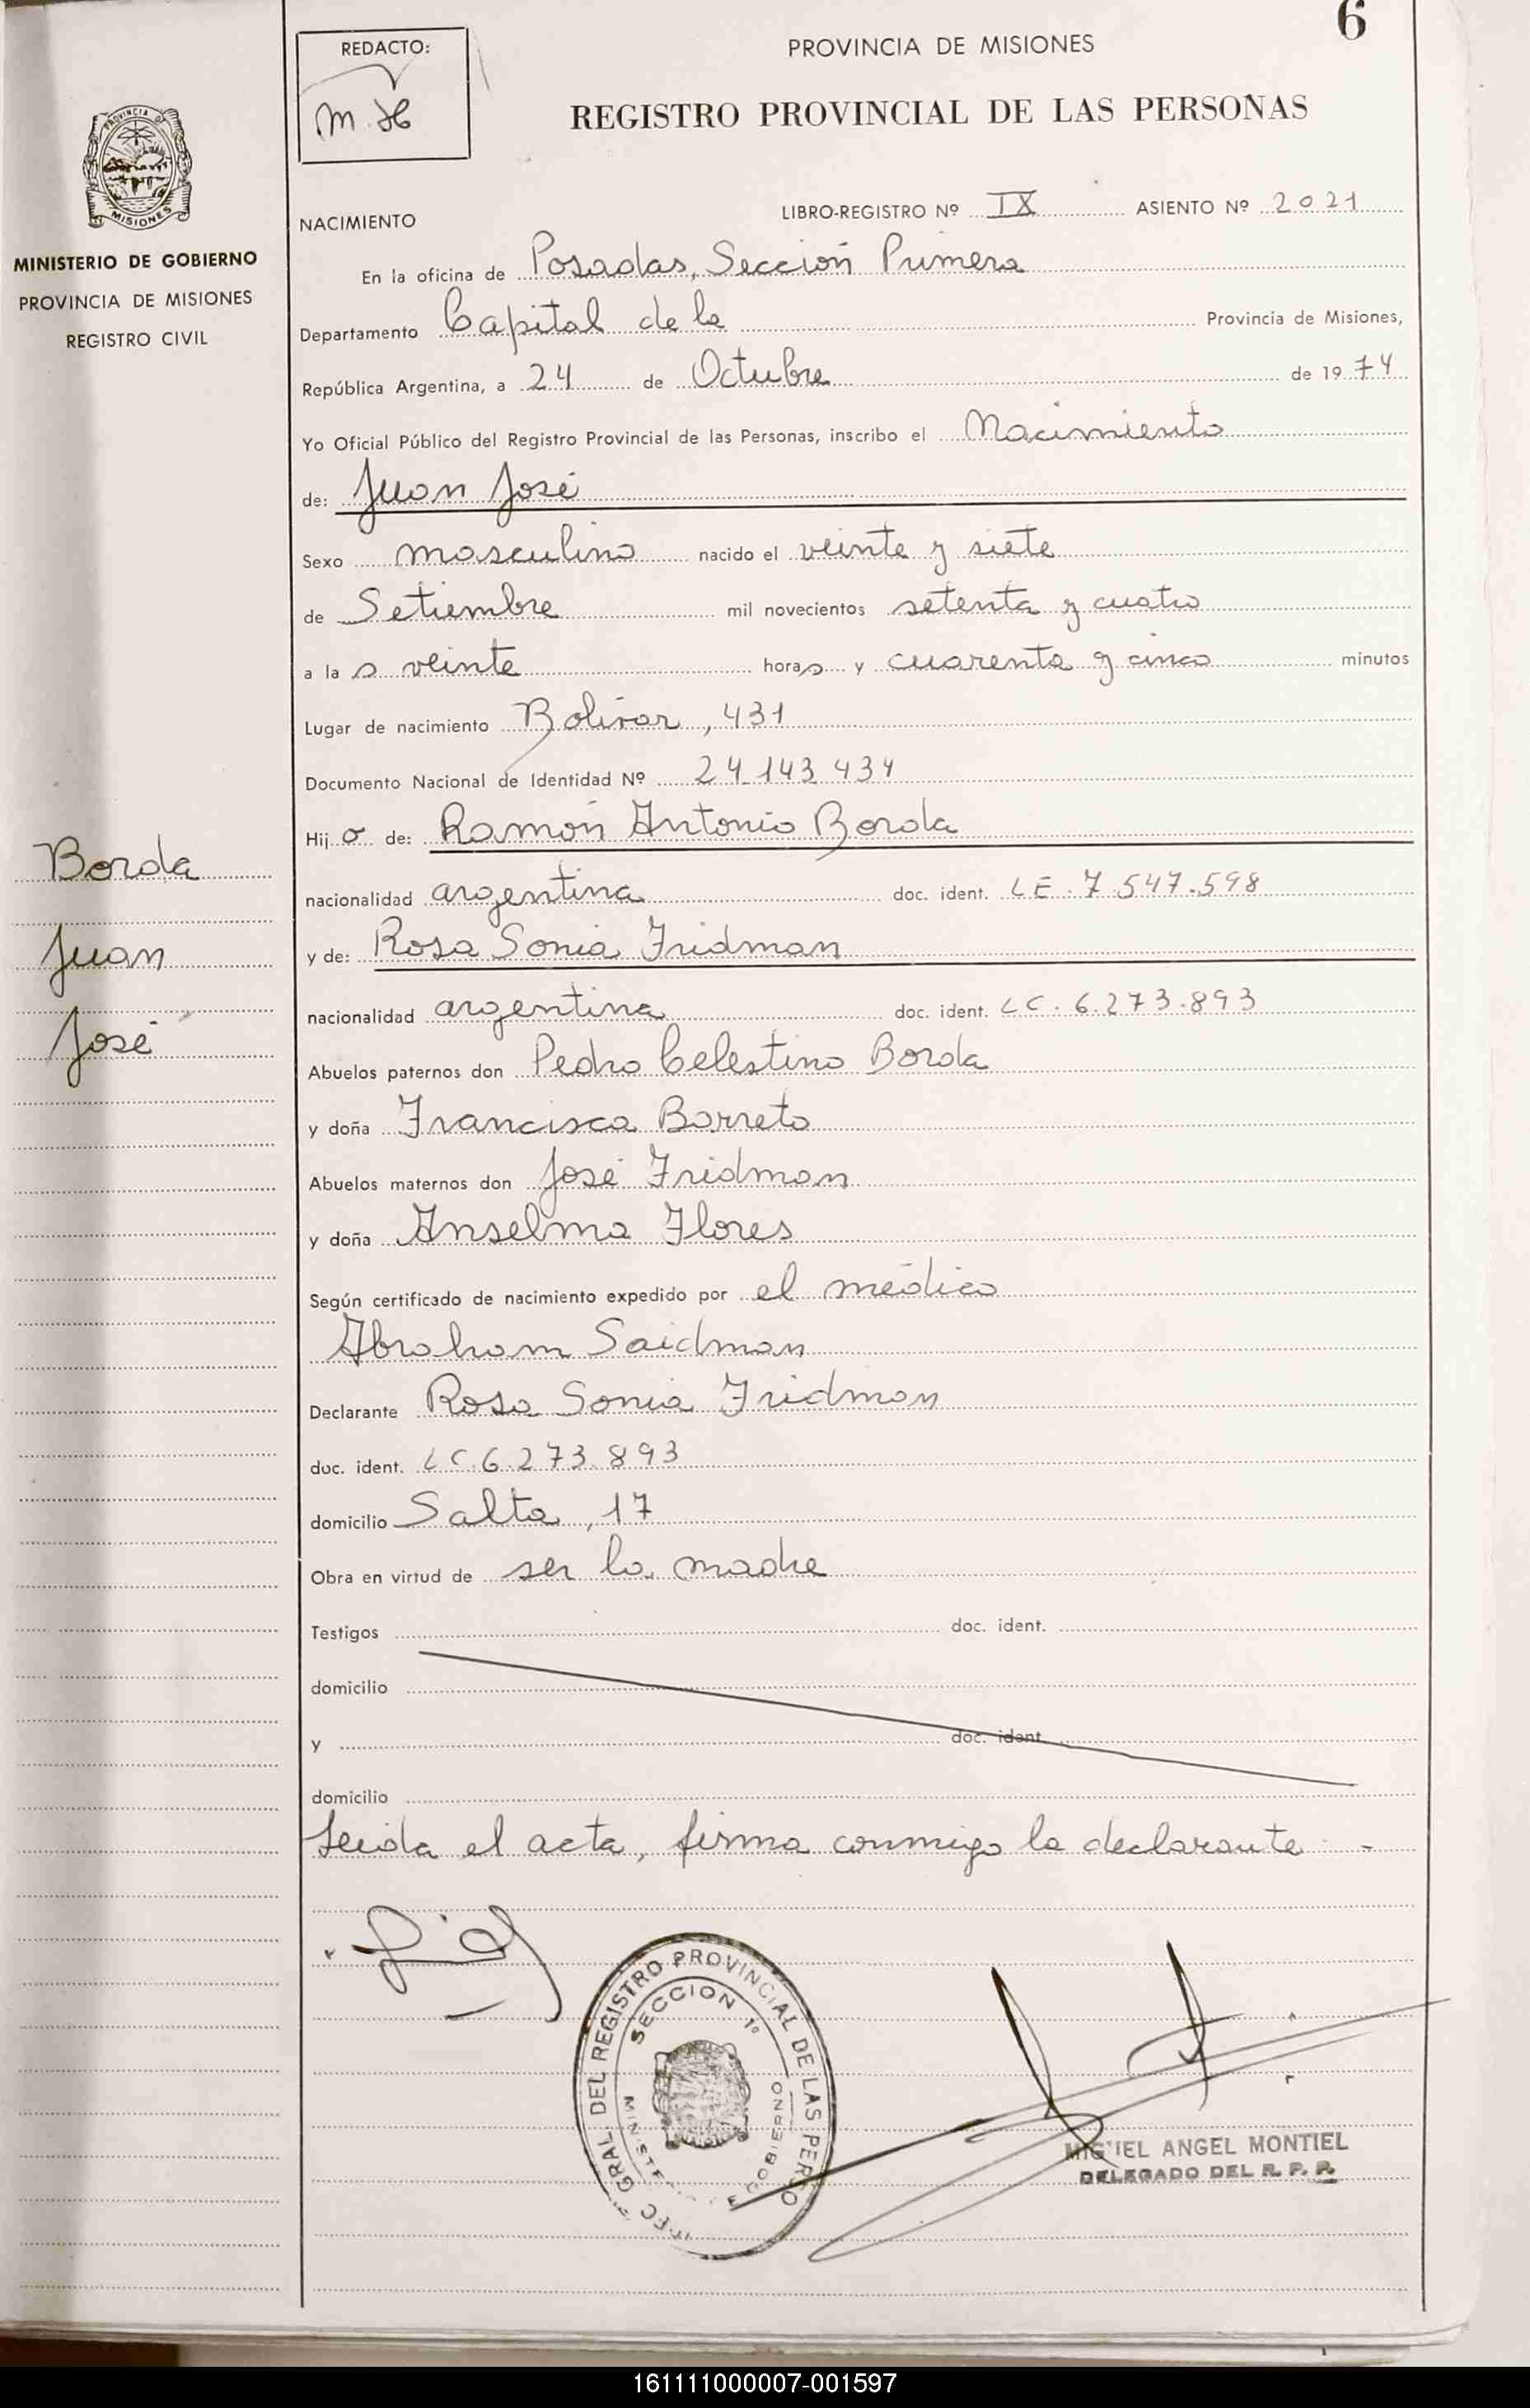 6
REDACTO:
M. H
PROVINCIA DE MISIONES
REGISTRO PROVINCIAL DE LAS PERSONAS
PROVINCIA DE
MISIONES
MINISTERIO DE GOBIERNO
PROVINCIA DE MISIONES
REGISTRO CIVIL
LIBRO-REGISTRO Nº IX ASIENTO Nº 2021
NACIMIENTO
En la oficina de Posadas, Sección Primera
Departamento Capital de la Provincia de Misiones,
República Argentina, a 24 de Octubre de 1974
Yo Oficial Público del Registro Provincial de las Personas, inscribo el Nacimiento
de: Juan José
Sexo masculino nacido el veinte y siete
de Setiembre mil novecientos setenta y cuatro
a las veinte horas y cuarenta y cinco minutos
Lugar de nacimiento Bolívar, 431
Documento Nacional de Identidad Nº 24.143.434
Hijo de: Ramón Antonio Borda
nacionalidad argentina doc. ident. LE. 7.547.598
y de: Rosa Sonia Fridman
nacionalidad argentina doc. ident. LC. 6.273.893
Abuelos paternos don Pedro Celestino Borda
y doña Francisca Barreto
Abuelos maternos don José Fridman
y doña Anselma Flores
Según certificado de nacimiento expedido por el médico
Abraham Saidman
Declarante Rosa Sonia Fridman
doc. ident. LC. 6.273.893
domicilio Salta, 17
Obra en virtud de ser la madre
Testigos doc. ident.
domicilio
y doc. ident.
domicilio
Leida el acta, firma conmigo la declarante.-
Borda
Juan
José
GRAL. DEL REGISTRO PROVINCIAL DE LAS PERSO
SECCION 1º
GOBIERNO
MIGUEL ANGEL MONTIEL
DELEGADO DEL R. P. P.
161111000007-001597